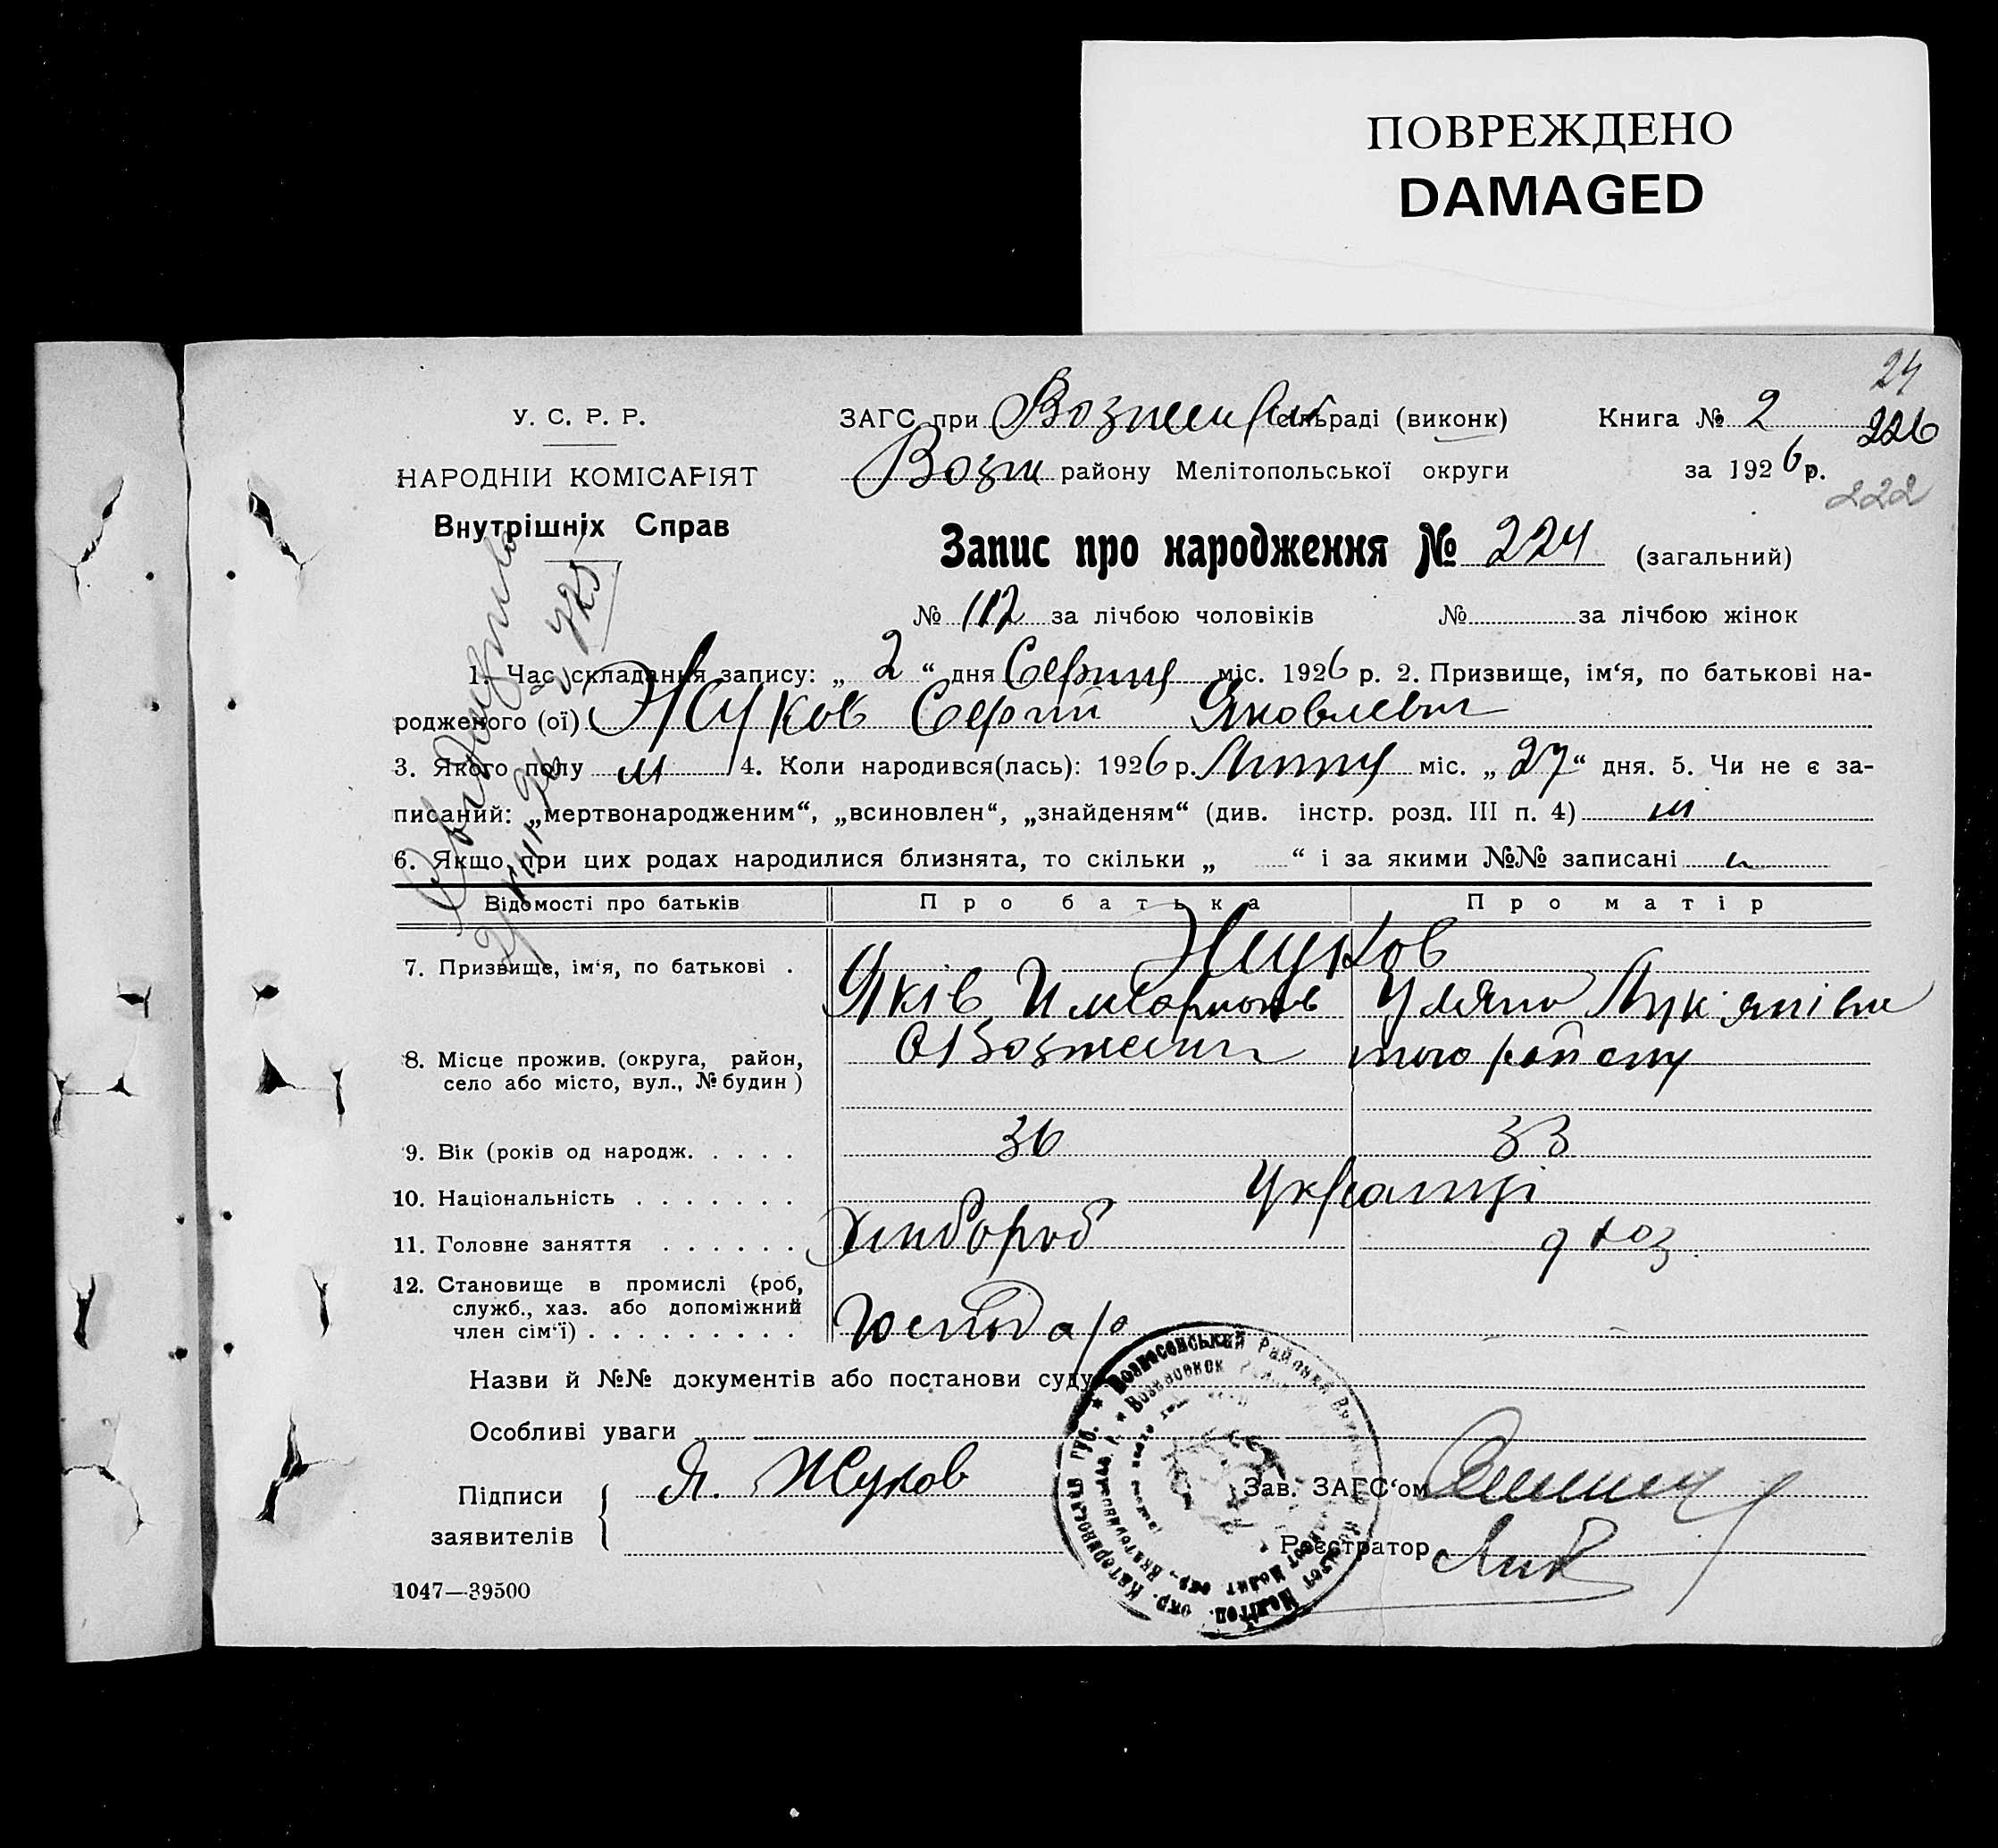 ПОВРЕЖДЕНО
DAMAGED
24
У. С. Р. Р.
ЗАГС при сільраді (виконк)
Книга № 2
226
НАРОДНІЙ КОМІСАРІЯТ
Возн району Мелітопольської округи
за 1926 р.
222
Внутрішніх Справ
Запис про народження № 224 (загальний)
№ 112 за лічбою чоловіків № за лічбою жінок
1. Час складання запису: „ 2 “ дня Серпня міс. 1926 р. 2. Призвище, ім‘я, по батькові на-
родженого (ої) Жуков Сергій Яковлевич
3. Якого полу м 4. Коли народився(лась): 1926 р. Липня міс. „ 27 “ дня. 5. Чи не є за-
писаний: „мертвонародженим“, „всиновлен“, „знайденям“ (див. інстр. розд. III п. 4)
6. Якщо при цих родах народилися близнята, то скільки „ “ і за якими №№ записані
Відомості про батьків Про батька Про матір
Жуков
7. Призвище, ім‘я, по батькові .
Яків Уляна Лук'янівна
8. Місце прожив. (округа, район, село або місто, вул., № будин)
того району
9. Вік (років од народж. . . . . 36 33
10. Національність . . . . . . . Українці
11. Головне заняття . . . . . . Хлибороб д хоз.
12. Становище в промислі (роб,
служб., хаз. або допоміжний
член сім‘ї) . . . . . . . . . Господар
Назви й №№ документів або постанови суду
Особливі уваги
Підписи
заявителів
Я. Жуков
Зав. ЗАГС‘ом
Реєстратор
1047—39500